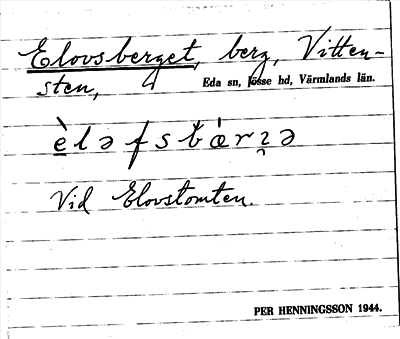 Elovsberget, berg, Vitten-
sten, Eda sn, Jösse hd, Värmlands län.
Vid Elovstomten.
PER HENNINGSSON 1944.